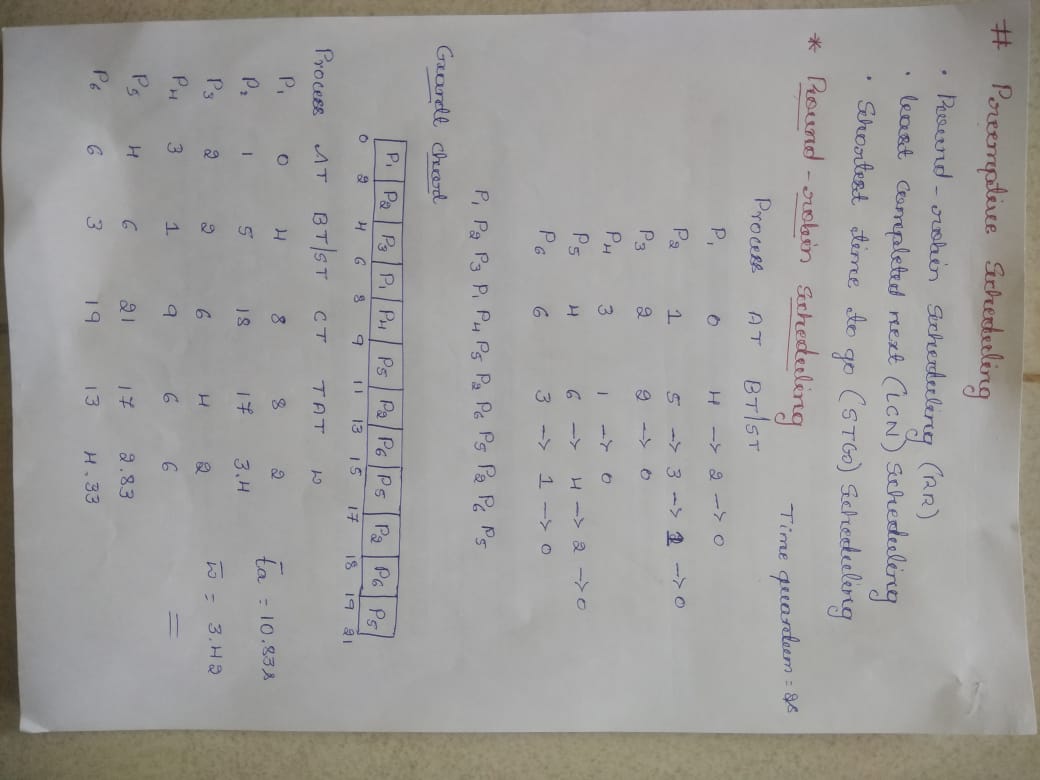 # Preemptive Scheduling
• Round-robin Scheduling (RR)
• least completed next (LCN) Scheduling
• Shortest time to go (STGO) Scheduling
* Round-robin Scheduling
Time quantum = 2s
Process AT BT/ST
P1 0 4 -> 2 -> 0
P2 1 5 -> 3 -> 1 -> 0
P3 2 2 -> 0
P4 3 1 -> 0
P5 4 6 -> 4 -> 2 -> 0
P6 6 3 -> 1 -> 0
P1 P2 P3 P1 P4 P5 P2 P6 P5 P2 P6 P5
Grantt chart
P1 P2 P3 P1 P4 P5 P2 P6 P5 P2 P6 P5
0 2 4 6 8 9 11 13 15 17 18 19 21
Process AT BT/ST CT TAT W
P1 0 4 8 8 2
P2 1 5 18 17 3.4
P3 2 2 6 4 2
P4 3 1 9 6 6
P5 4 6 21 17 2.83
P6 6 3 19 13 4.33
t̄a = 10.83s
w̄ = 3.42